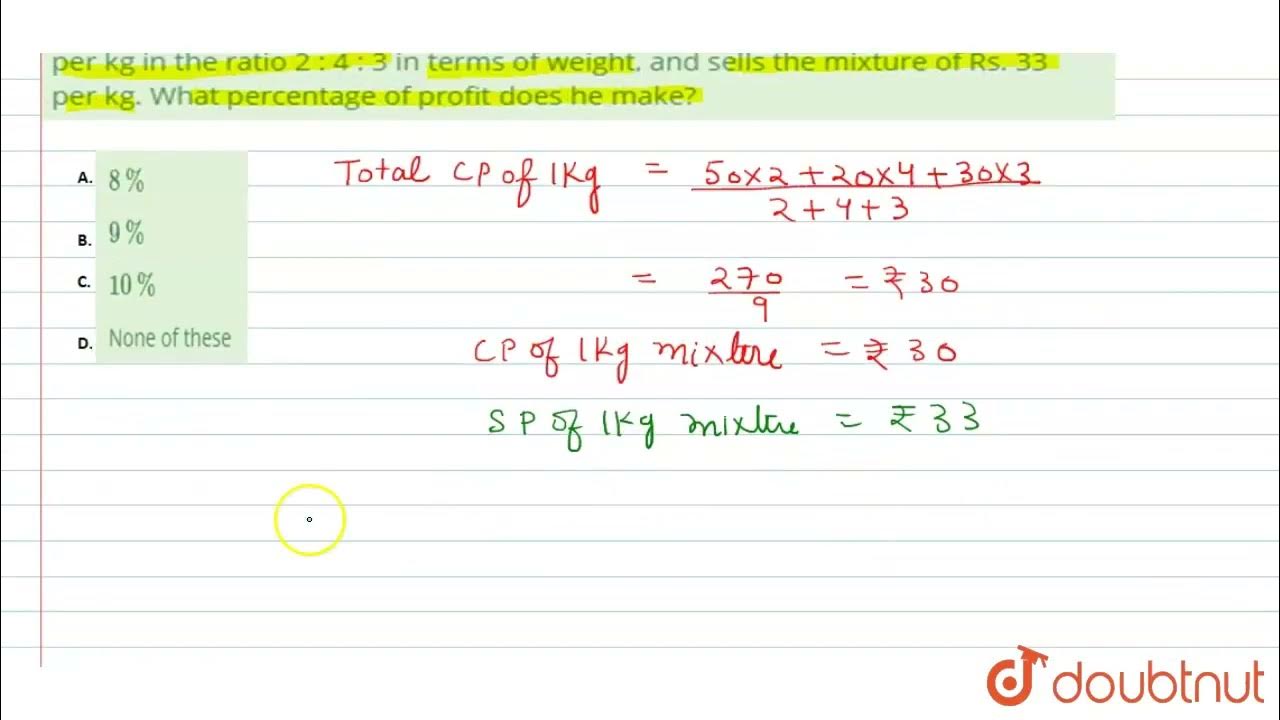 per kg in the ratio 2 : 4 : 3 in terms of weight. and sells the mixture of Rs. 33
per kg. What percentage of profit does he make?
A. 8 %
B. 9 %
C. 10 %
D. None of these
Total CP of 1Kg = 50x2 + 20x4 + 30x3
2 + 4 + 3
= 270 = ₹ 30
9
CP of 1Kg mixture = ₹ 30
SP of 1Kg mixture = ₹ 33
doubtnut